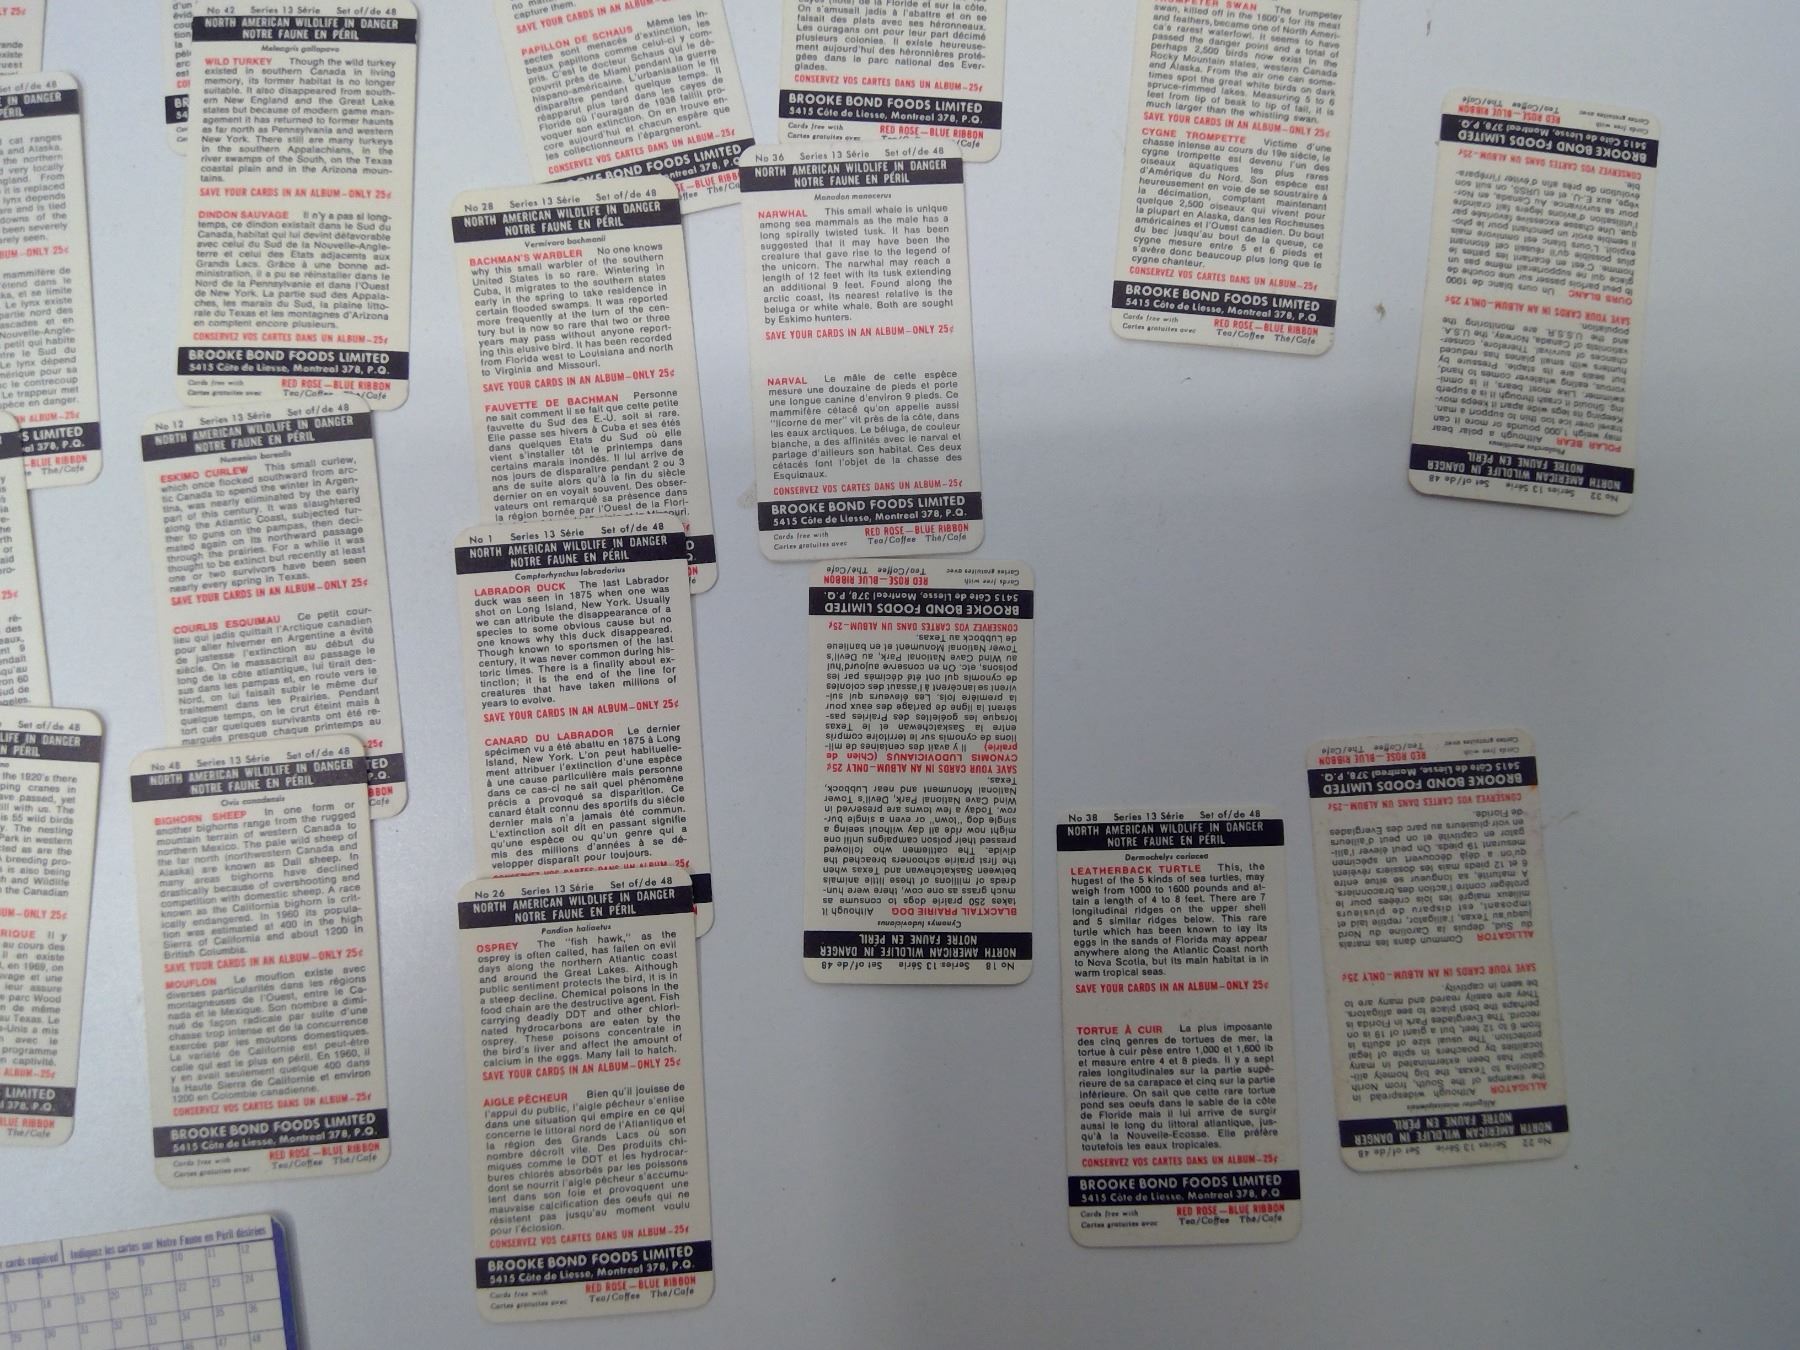 No 42 Series 13 Série Set of/de 48
NORTH AMERICAN WILDLIFE IN DANGER
NOTRE FAUNE EN PÉRIL
Meleagris gallopavo
WILD TURKEY Though the wild turkey
existed in southern Canada in living
memory, its former habitat is no longer
suitable. It also disappeared from south-
ern New England and the Great Lake
states but because of modern game man-
agement it has returned to former haunts
as far north as Pennsylvania and western
New York. There are still many turkeys
in the southern Appalachians, in the
river swamps of the South, on the Texas
coastal plain and in the Arizona moun-
tains.
SAVE YOUR CARDS IN AN ALBUM—ONLY 25¢
DINDON SAUVAGE Il n'y a pas si long-
temps, ce dindon existait dans le Sud du
Canada, habitat qui lui devint défavorable
avec celui du Sud de la Nouvelle-Angle-
terre et celui des Etats adjacents aux
Grands Lacs. Grâce à une bonne ad-
ministration, il a pu se réinstaller dans le
Nord de la Pennsylvanie et dans l'Ouest
de New York. La partie sud des Appala-
ches, les marais du Sud, la plaine litto-
rale du Texas et les montagnes d'Arizona
en comptent encore plusieurs.
CONSERVEZ VOS CARTES DANS UN ALBUM—25¢
BROOKE BOND FOODS LIMITED
5415 Côte de Liesse, Montreal 378, P.Q.
Cards free with RED ROSE—BLUE RIBBON
PAPILLON DE SCHAUS Même les in-
sectes sont menacés d'extinction, si
beaux papillons comme celui-ci y com-
pris. C'est le docteur Schaus qui le dé-
couvrit près de Miami pendant la guerre
hispano-américaine. L'urbanisation le fit
disparaître pendant quelque temps. Il
réapparut plus tard dans les cayes de
Floride où l'ouragan de 1936 faillit pro-
voquer son extinction. On en trouve en-
core aujourd'hui et chacun espère que
les collectionneurs l'épargneront.
CONSERVEZ VOS CARTES DANS UN ALBUM—25¢
On s'amusait jadis à l'abattre et on se
faisait des plats avec ses héronneaux.
Les ouragans ont pour leur part décimé
plusieurs colonies. Il existe heureuse-
ment aujourd'hui des héronnières proté-
gées dans le parc national des Ever-
glades.
CONSERVEZ VOS CARTES DANS UN ALBUM—25¢
BROOKE BOND FOODS LIMITED
5415 Côte de Liesse, Montreal 378, P.Q.
Cards free with RED ROSE—BLUE RIBBON
TRUMPETER SWAN The trumpeter
swan, killed off in the 1800's for its meat
and feathers, became one of North Ameri-
ca's rarest waterfowl. It seems to have
passed the danger point and a total of
perhaps 2,500 birds now exist in the
Rocky Mountain states, western Canada
and Alaska. From the air one can some-
times spot the great white birds on dark
spruce-rimmed lakes. Measuring 5 to 6
feet from tip of beak to tip of tail, it is
much larger than the whistling swan.
SAVE YOUR CARDS IN AN ALBUM—ONLY 25¢
CYGNE TROMPETTE Victime d'une
chasse intense au cours du 19e siècle, le
cygne trompette est devenu l'un des
oiseaux aquatiques les plus rares
d'Amérique du Nord. Son espèce est
heureusement en voie de se soustraire à
la décimation, comptant maintenant
quelque 2,500 oiseaux qui vivent pour
la plupart en Alaska, dans les Rocheuses
américaines et l'Ouest canadien. Du bout
du bec jusqu'au bout de la queue, ce
cygne mesure entre 5 et 6 pieds et
s'avère donc beaucoup plus long que le
cygne chanteur.
CONSERVEZ VOS CARTES DANS UN ALBUM—25¢
BROOKE BOND FOODS LIMITED
5415 Côte de Liesse, Montreal 378, P.Q.
Cards free with RED ROSE—BLUE RIBBON
Cartes gratuites avec Tea/Coffee Thé/Café
No 28 Series 13 Série Set of/de 48
NORTH AMERICAN WILDLIFE IN DANGER
NOTRE FAUNE EN PÉRIL
Vermivora bachmanii
BACHMAN'S WARBLER No one knows
why this small warbler of the southern
United States is so rare. Wintering in
Cuba, it migrates to the southern states
early in the spring to take residence in
certain flooded swamps. It was reported
more frequently at the turn of the cen-
tury but is now so rare that two or three
years may pass without anyone report-
ing this elusive bird. It has been recorded
from Florida west to Louisiana and north
to Virginia and Missouri.
SAVE YOUR CARDS IN AN ALBUM—ONLY 25¢
FAUVETTE DE BACHMAN Personne
ne sait comment il se fait que cette petite
fauvette du Sud des E.-U. soit si rare.
Elle passe ses hivers à Cuba et ses étés
dans quelques Etats du Sud où elle
vient s'installer tôt le printemps dans
certains marais inondés. Il lui arrive de
nos jours de disparaître pendant 2 ou 3
ans de suite alors qu'à la fin du siècle
dernier on en voyait souvent. Des obser-
vateurs ont remarqué sa présence dans
la région bornée par l'Ouest de la Flori-
No 36 Series 13 Série Set of/de 48
NORTH AMERICAN WILDLIFE IN DANGER
NOTRE FAUNE EN PÉRIL
Monodon monocerus
NARWHAL This small whale is unique
among sea mammals as the male has a
long spirally twisted tusk. It has been
suggested that it may have been the
creature that gave rise to the legend of
the unicorn. The narwhal may reach a
length of 12 feet with its tusk extending
an additional 9 feet. Found along the
arctic coast, its nearest relative is the
beluga or white whale. Both are sought
by Eskimo hunters.
SAVE YOUR CARDS IN AN ALBUM—ONLY 25¢
NARVAL Le mâle de cette espèce
mesure une douzaine de pieds et porte
une longue canine d'environ 9 pieds. Ce
mammifère cétacé qu'on appelle aussi
"licorne de mer" vit près de la côte, dans
les eaux arctiques. Le béluga, de couleur
blanche, a des affinités avec le narval et
partage d'ailleurs son habitat. Ces deux
cétacés font l'objet de la chasse des
Esquimaux.
CONSERVEZ VOS CARTES DANS UN ALBUM—25¢
BROOKE BOND FOODS LIMITED
5415 Côte de Liesse, Montreal 378, P.Q.
Cards free with RED ROSE—BLUE RIBBON
Cartes gratuites avec Tea/Coffee Thé/Café
No 32 Series 13 Série Set of/de 48
NORTH AMERICAN WILDLIFE IN DANGER
NOTRE FAUNE EN PÉRIL
POLAR BEAR Although a polar bear
may weigh 1,000 pounds or more it can
travel over ice too thin to support a man.
Keeping its legs wide apart it keeps mov-
ing. Should it crash through it is a superb
swimmer. Like most bears, it is omni-
vorous, eating whatever comes to hand,
but seals are its staple. Pressure by
hunters with small planes has reduced
chances of survival. Therefore, conser-
vationists of Canada, Norway, the U.S.A.
and the U.S.S.R. are monitoring the
population.
SAVE YOUR CARDS IN AN ALBUM—ONLY 25¢
OURS BLANC Un ours blanc de 1000
lb peut parfois passer sur une couche de
glace qui ne supporterait même pas un
CONSERVEZ VOS CARTES DANS UN ALBUM—25¢
BROOKE BOND FOODS LIMITED
5415 Côte de Liesse, Montreal 378, P.Q.
Cards free with RED ROSE—BLUE RIBBON
Cartes gratuites avec Tea/Coffee Thé/Café
No 12 Series 13 Série Set of/de 48
NORTH AMERICAN WILDLIFE IN DANGER
NOTRE FAUNE EN PÉRIL
Numenius borealis
ESKIMO CURLEW This small curlew,
which once flocked southward from arc-
tic Canada to spend the winter in Argen-
tina, was nearly eliminated by the early
part of this century. It was slaughtered
along the Atlantic Coast, subjected fur-
ther to guns on the pampas, then deci-
mated again on its northward passage
through the prairies. For a while it was
thought to be extinct but recently at least
one or two survivors have been seen
nearly every spring in Texas.
SAVE YOUR CARDS IN AN ALBUM—ONLY 25¢
COURLIS ESQUIMAU Ce petit cour-
lieu qui jadis quittait l'Arctique canadien
pour aller hiverner en Argentine a évité
de justesse l'extinction au début du
siècle. On le massacrait au passage le
long de la côte atlantique, lui tirait des-
sus dans les pampas et, en route vers le
Nord, on lui faisait subir le même dur
traitement dans les Prairies. Pendant
quelque temps, on le crut éteint mais à
tort car quelques survivants ont été re-
marqués presque chaque printemps au
No 1 Series 13 Série Set of/de 48
NORTH AMERICAN WILDLIFE IN DANGER
NOTRE FAUNE EN PÉRIL
Camptorhynchus labradorius
LABRADOR DUCK The last Labrador
duck was seen in 1875 when one was
shot on Long Island, New York. Usually
we can attribute the disappearance of a
species to some obvious cause but no
one knows why this duck disappeared.
Though known to sportsmen of the last
century, it was never common during his-
toric times. There is a finality about ex-
tinction; it is the end of the line for
creatures that have taken millions of
years to evolve.
SAVE YOUR CARDS IN AN ALBUM—ONLY 25¢
CANARD DU LABRADOR Le dernier
spécimen vu a été abattu en 1875 à Long
Island, New York. L'on peut habituelle-
ment attribuer l'extinction d'une espèce
à une cause particulière mais personne
dans ce cas-ci ne sait quel phénomène
précis a provoqué sa disparition. Ce
canard était connu des sportifs du siècle
dernier mais n'a jamais été commun.
L'extinction soit dit en passant signifie
qu'une espèce ou qu'un genre qui a
mis des millions d'années à se dé-
velopper disparaît pour toujours.
No 18 Series 13 Série Set of/de 48
NORTH AMERICAN WILDLIFE IN DANGER
NOTRE FAUNE EN PÉRIL
Cynomys ludovicianus
BLACKTAIL PRAIRIE DOG Although it
takes 250 prairie dogs to consume as
much grass as one cow, there were hun-
dreds of millions of these little animals
between Saskatchewan and Texas when
the first prairie schooners breached the
divide. The cattlemen who followed
pressed their poison campaigns until one
might now ride all day without seeing a
single dog "town" or even a single bur-
row. Today a few towns are preserved in
Wind Cave National Park, Devil's Tower
National Monument and near Lubbock,
Texas.
SAVE YOUR CARDS IN AN ALBUM—ONLY 25¢
CYNOMIS LUDOVICIANUS (chien de
prairie) Il y avait des centaines de mil-
lions de cynomis sur le territoire compris
entre la Saskatchewan et le Texas
lorsque les goélettes des Prairies pas-
sèrent la ligne de partage des eaux pour
la première fois. Les éleveurs qui sui-
virent se lancèrent à l'assaut des colonies
de cynomis qui ont été décimés par les
poisons, etc. On en conserve aujourd'hui
au Wind Cave National Park, au Devil's
Tower National Monument et en banlieue
de Lubbock au Texas.
CONSERVEZ VOS CARTES DANS UN ALBUM—25¢
BROOKE BOND FOODS LIMITED
5415 Côte de Liesse, Montreal 378, P.Q.
Cards free with RED ROSE—BLUE RIBBON
Cartes gratuites avec Tea/Coffee Thé/Café
No 48 Series 13 Série Set of/de 48
NORTH AMERICAN WILDLIFE IN DANGER
NOTRE FAUNE EN PÉRIL
Ovis canadensis
BIGHORN SHEEP In one form or
another bighorns range from the rugged
mountain terrain of western Canada to
northern Mexico. The pale wild sheep of
the far north (northwestern Canada and
Alaska) are known as Dall sheep. In
many areas bighorns have declined
drastically because of overshooting and
competition with domestic sheep. A race
known as the California bighorn is crit-
ically endangered. In 1960 its popula-
tion was estimated at 400 in the high
Sierra of California and about 1200 in
British Columbia.
SAVE YOUR CARDS IN AN ALBUM—ONLY 25¢
MOUFLON Le mouflon existe avec
diverses particularités dans les régions
montagneuses de l'Ouest, entre le Ca-
nada et le Mexique. Son nombre a dimi-
nué de façon radicale par suite d'une
chasse trop intense et de la concurrence
exercée par les moutons domestiques.
La variété de Californie est peut-être
celle qui est le plus en péril. En 1960, il
y en avait seulement quelque 400 dans
la Haute Sierra de Californie et environ
1200 en Colombie canadienne.
CONSERVEZ VOS CARTES DANS UN ALBUM—25¢
BROOKE BOND FOODS LIMITED
5415 Côte de Liesse, Montreal 378, P.Q.
Cards free with RED ROSE—BLUE RIBBON
Cartes gratuites avec Tea/Coffee Thé/Café
No 26 Series 13 Série Set of/de 48
NORTH AMERICAN WILDLIFE IN DANGER
NOTRE FAUNE EN PÉRIL
Pandion haliaetus
OSPREY The "fish hawk," as the
osprey is often called, has fallen on evil
days along the northern Atlantic coast
and around the Great Lakes. Although
public sentiment protects the bird, it is in
a steep decline. Chemical poisons in the
food chain are the destructive agent. Fish
carrying deadly DDT and other chlori-
nated hydrocarbons are eaten by the
osprey. These poisons concentrate in
the bird's liver and affect the amount of
calcium in the eggs. Many fail to hatch.
SAVE YOUR CARDS IN AN ALBUM—ONLY 25¢
AIGLE PÊCHEUR Bien qu'il jouisse de
l'appui du public, l'aigle pêcheur s'enlise
dans une situation qui empire en ce qui
concerne le littoral nord de l'Atlantique et
la région des Grands Lacs où son
nombre décroît vite. Des produits chi-
miques comme le DDT et les hydrocar-
bures chlorés absorbés par les poissons
dont se nourrit l'aigle pêcheur s'accumu-
lent dans son foie et provoquent une
mauvaise calcification des oeufs qui ne
résistent pas jusqu'au moment voulu
pour l'éclosion.
CONSERVEZ VOS CARTES DANS UN ALBUM—25¢
BROOKE BOND FOODS LIMITED
5415 Côte de Liesse, Montreal 378, P.Q.
Cards free with RED ROSE—BLUE RIBBON
Cartes gratuites avec Tea/Coffee Thé/Café
No 38 Series 13 Série Set of/de 48
NORTH AMERICAN WILDLIFE IN DANGER
NOTRE FAUNE EN PÉRIL
Dermochelys coriacea
LEATHERBACK TURTLE This, the
hugest of the 5 kinds of sea turtles, may
weigh from 1000 to 1600 pounds and at-
tain a length of 4 to 8 feet. There are 7
longitudinal ridges on the upper shell
and 5 similar ridges below. This rare
turtle which has been known to lay its
eggs in the sands of Florida may appear
anywhere along the Atlantic Coast north
to Nova Scotia, but its main habitat is in
warm tropical seas.
SAVE YOUR CARDS IN AN ALBUM—ONLY 25¢
TORTUE À CUIR La plus imposante
des cinq genres de tortues de mer, la
tortue à cuir pèse entre 1,000 et 1,600 lb
et mesure entre 4 et 8 pieds. Il y a sept
raies longitudinales sur la partie supé-
rieure de sa carapace et cinq sur la partie
inférieure. On sait que cette rare tortue
pond ses oeufs dans le sable de la côte
de Floride mais il lui arrive de surgir
aussi le long du littoral atlantique, jus-
qu'à la Nouvelle-Ecosse. Elle préfère
toutefois les eaux tropicales.
CONSERVEZ VOS CARTES DANS UN ALBUM—25¢
BROOKE BOND FOODS LIMITED
5415 Côte de Liesse, Montreal 378, P.Q.
Cards free with RED ROSE—BLUE RIBBON
Cartes gratuites avec Tea/Coffee Thé/Café
No 22 Series 13 Série Set of/de 48
NORTH AMERICAN WILDLIFE IN DANGER
NOTRE FAUNE EN PÉRIL
Alligator mississippiensis
ALLIGATOR Although widespread in
the swamps of the South, from North
Carolina to Texas, the big homely alli-
gator has been exterminated in many
localities by poachers in spite of legal
protection. The usual size of adults is
from 6 to 12 feet, but a giant of 19 is on
record. The Everglades Park in Florida is
perhaps the best place to see alligators.
They are easily reared and many are to
be seen in captivity.
SAVE YOUR CARDS IN AN ALBUM—ONLY 25¢
ALLIGATOR Commun dans les marais
du Sud, depuis la Caroline du Nord
jusqu'au Texas, l'alligator, reptile laid et
imposant, est disparu de plusieurs
milieux malgré les lois créées pour le
protéger contre l'action des braconniers.
A maturité, sa longueur se situe entre
6 et 12 pieds mais les dossiers révèlent
qu'on a déjà découvert un spécimen
mesurant 19 pieds. On peut élever l'alli-
gator en captivité et on peut d'ailleurs
en voir plusieurs au parc des Everglades
de Floride.
CONSERVEZ VOS CARTES DANS UN ALBUM—25¢
BROOKE BOND FOODS LIMITED
5415 Côte de Liesse, Montreal 378, P.Q.
Cards free with RED ROSE—BLUE RIBBON
Cartes gratuites avec Tea/Coffee Thé/Café
cards required Indiquez les cartes sur Notre Faune en Péril désirées